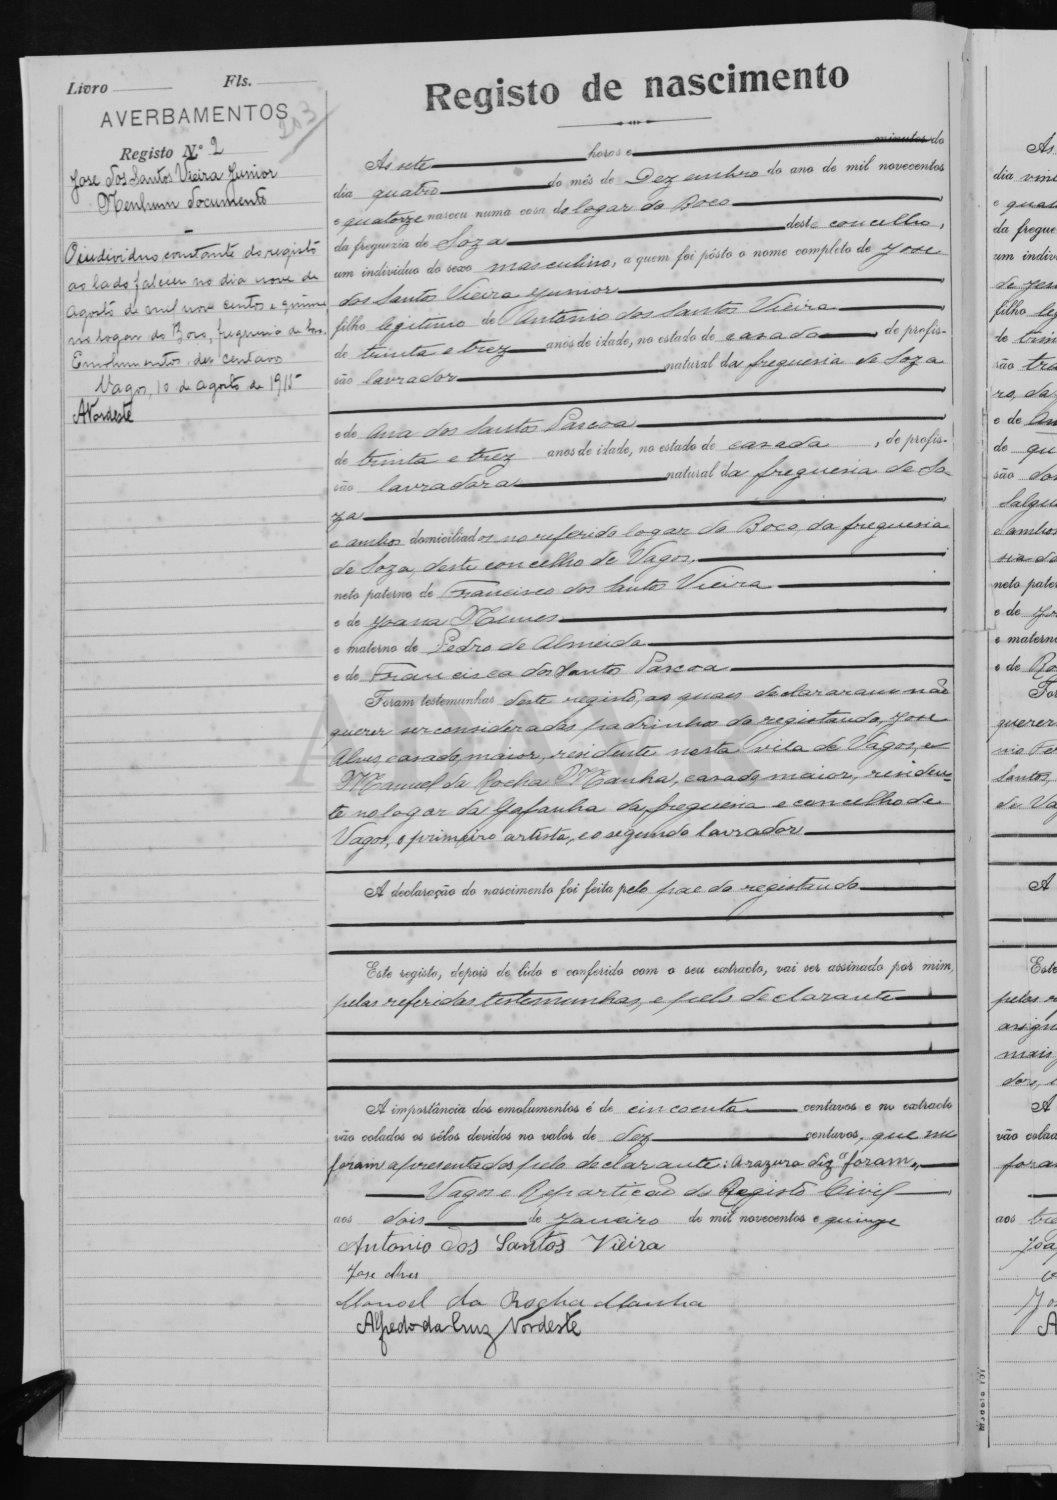 Livro Fls.
AVERBAMENTOS
203
Registo N.º 2
Jose dos Santos Vieira Junior
Nenhum documento
O individuo constante do registo
ao lado faleceu no dia nove de
Agosto de mil nove centos e quinze
no logar do Boco, freguesia de Soza.
Emolumentos, dez centavos
Vagos, 10 de agosto de 1915
ANordeste
Registo de nascimento
Às sete horas e minutos do
dia quatro do mês de Dezembro do ano de mil novecentos
e quatorze nasceu numa casa do logar do Boco
da freguezia de Soza deste concelho,
um individuo do sexo masculino, a quem foi pôsto o nome completo de Jose
dos Santos Vieira Junior
filho legitimo de Antonio dos Santos Vieira
de trinta e trez anos de idade, no estado de casado, de profis-
são lavrador natural da freguesia de Soza
e de Ana dos Santos Pascoa
de trinta e trez anos de idade, no estado de casada, de profis-
são lavradora natural da freguesia de So-
za
e ambos domiciliados no referido logar do Boco, da freguesia
de Soza, deste concelho de Vagos,
neto paterno de Francisco dos Santos Vieira
e de Joana Nunes
e materno de Pedro de Almeida
e de Francisca dos Santos Pascoa
Foram testemunhas deste registo, as quaes declararam não
querer ser consideradas padrinhos do registando, Jose
Alves, casado, maior, residente nesta vila de Vagos, e
Manuel da Rocha Manha, casado, maior, residen-
te no logar da Gafanha da freguesia e concelho de
Vagos, o primeiro artista, e o segundo lavrador
A declaração do nascimento foi feita pelo pae do registando
Este registo, depois de lido e conferido com o seu extracto, vai ser assinado por mim,
pelas referidas testemunhas, e pelo declarante
A importância dos emolumentos é de cincoenta centavos e no extracto
vão colados os sêlos devidos no valor de dez centavos, que me
foram apresentados pelo declarante: A razura diz "foram",
Vagos e Repartição do Registo Civil
aos dois de Janeiro de mil novecentos e quinze
Antonio dos Santos Vieira
Jose Alves
Manoel da Rocha Manha
Alfredo da Cruz Nordeste